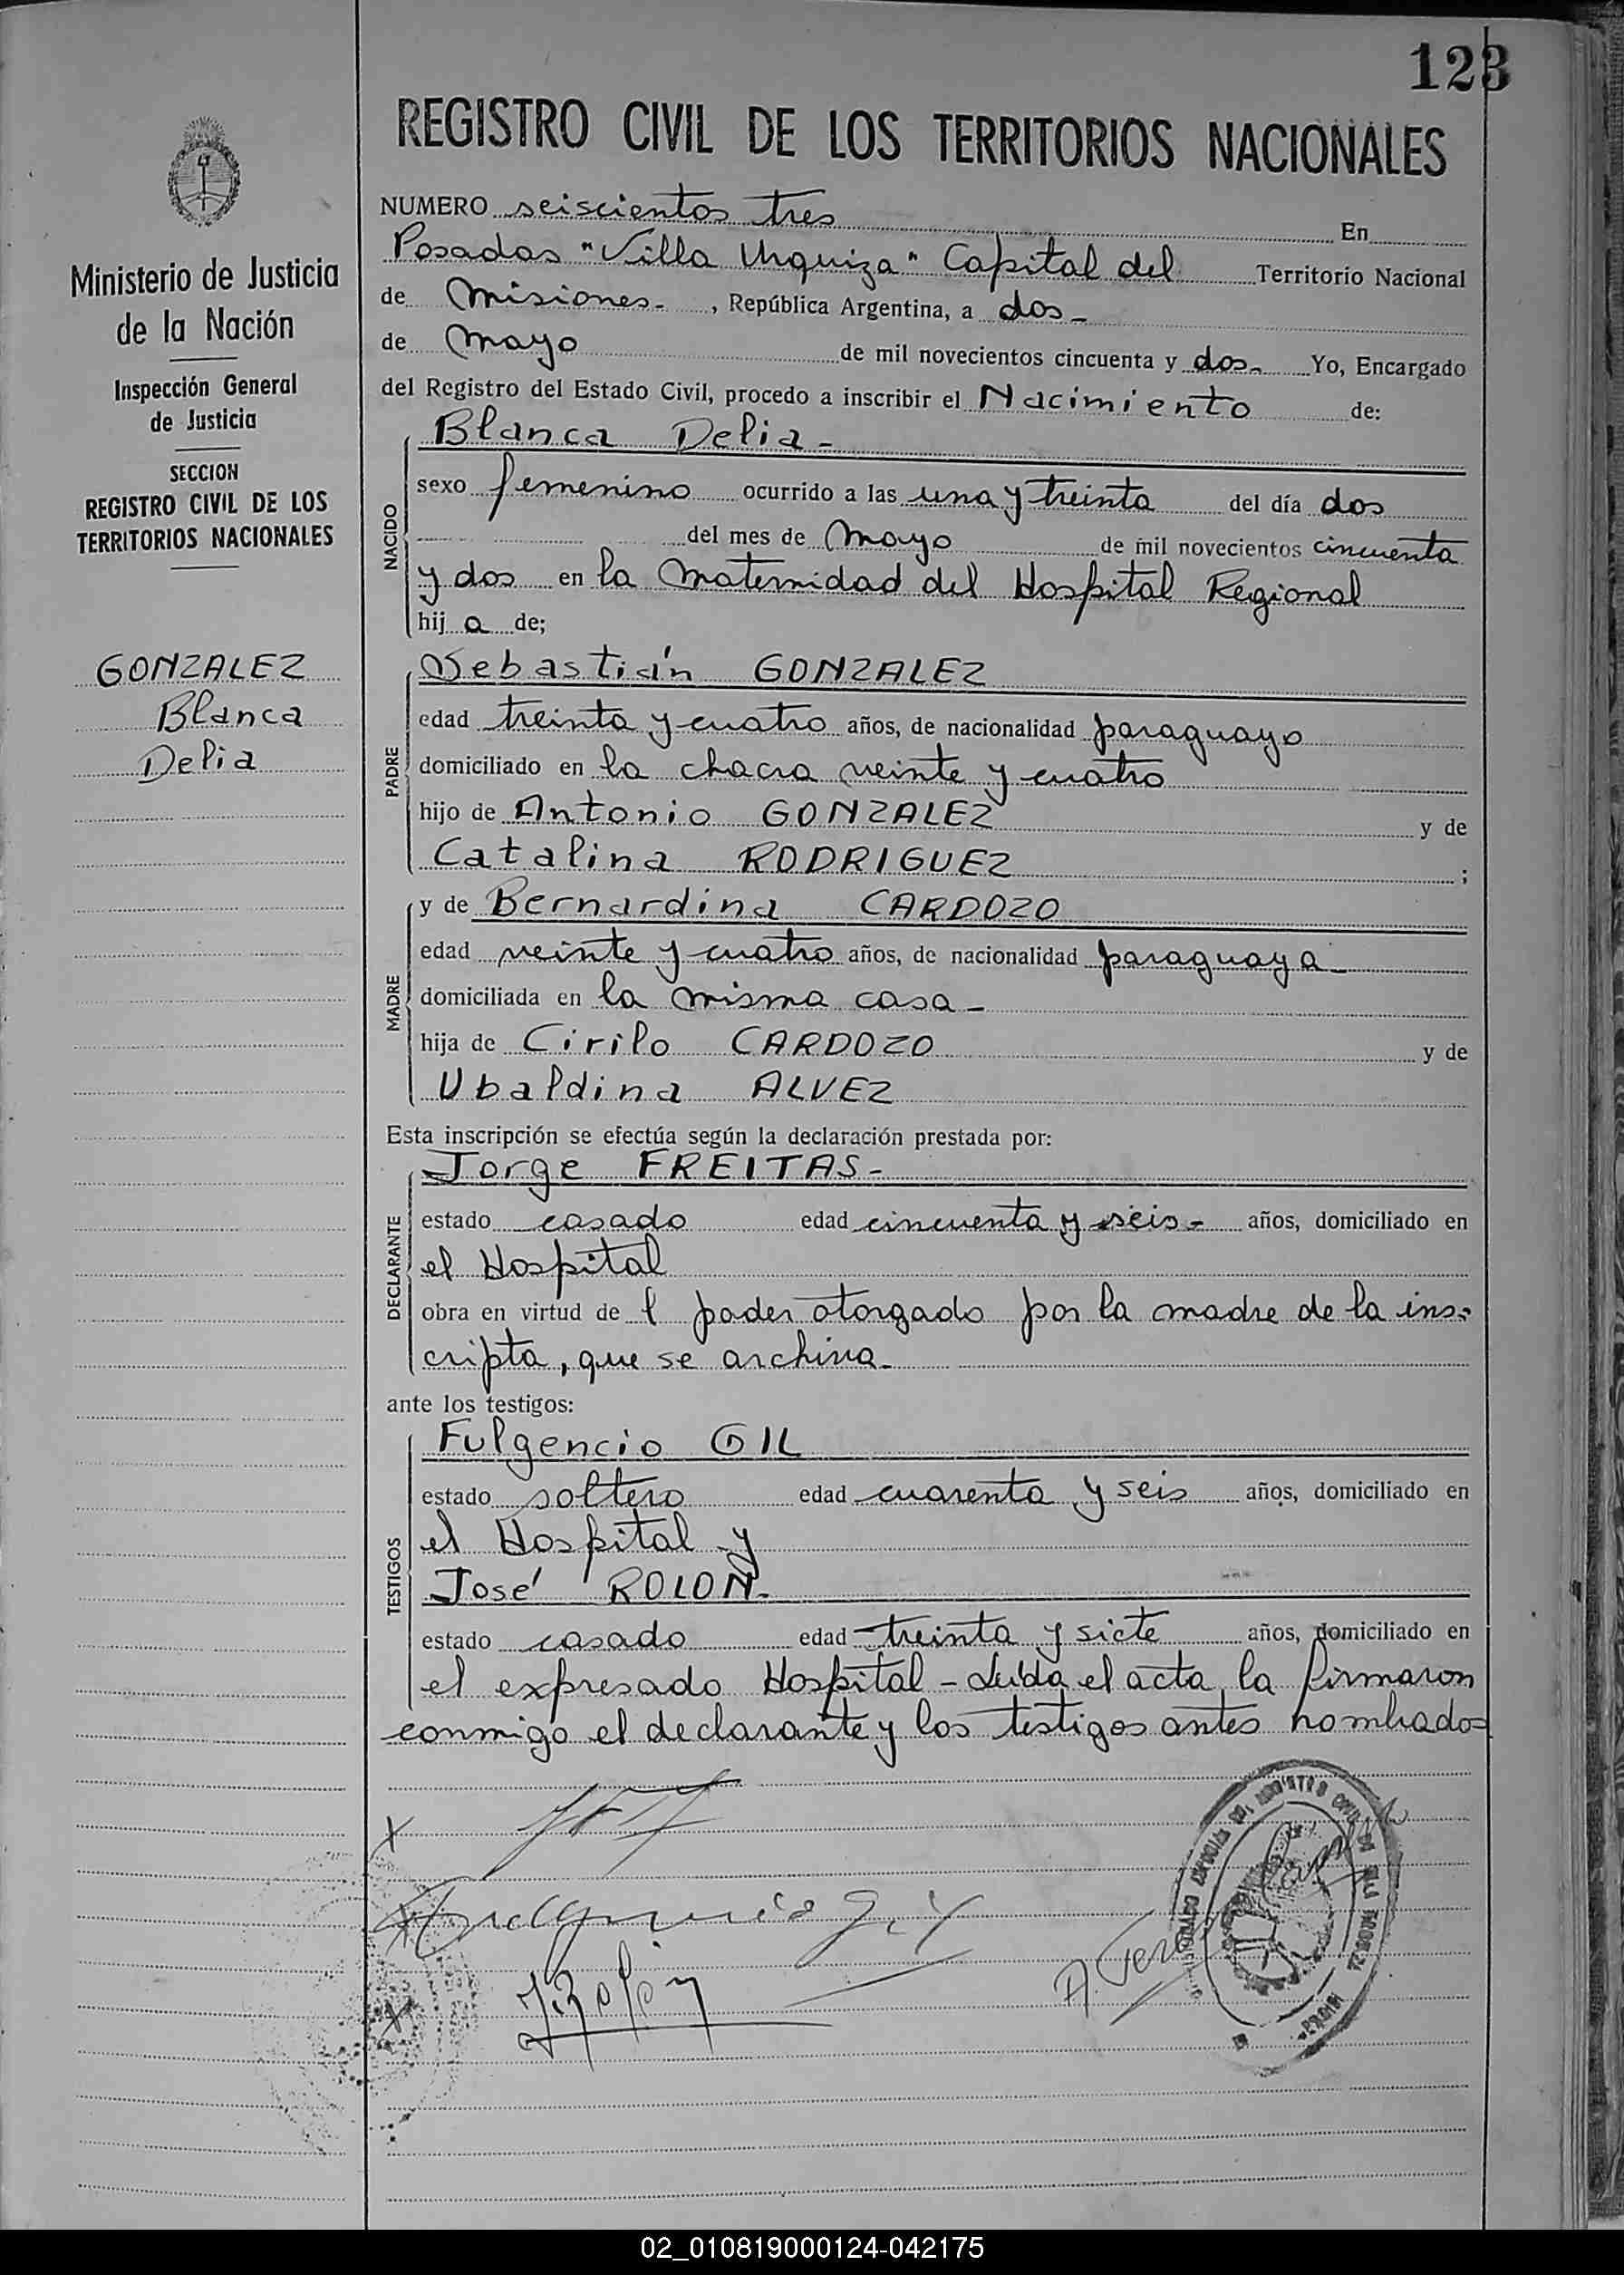 123
REGISTRO CIVIL DE LOS TERRITORIOS NACIONALES
Ministerio de Justicia
de la Nación
Inspección General
de Justicia
SECCION
REGISTRO CIVIL DE LOS
TERRITORIOS NACIONALES
GONZALEZ
Blanca
Delia
NUMERO seiscientos tres En
Posadas "Villa Urquiza" Capital del Territorio Nacional
de Misiones-, República Argentina, a dos-
de Mayo de mil novecientos cincuenta y dos- Yo, Encargado
del Registro del Estado Civil, procedo a inscribir el Nacimiento de:
NACIDO
Blanca Delia-
sexo femenino ocurrido a las una y treinta del día dos
del mes de Mayo de mil novecientos cincuenta
y dos en la Maternidad del Hospital Regional
hij a de;
PADRE
Sebastián GONZALEZ
edad treinta y cuatro años, de nacionalidad paraguayo
domiciliado en la chacra veinte y cuatro
hijo de Antonio GONZALEZ y de
Catalina RODRIGUEZ ;
MADRE
y de Bernardina CARDOZO
edad veinte y cuatro años, de nacionalidad paraguaya-
domiciliada en la misma casa-
hija de Cirilo CARDOZO y de
Ubaldina ALVEZ
Esta inscripción se efectúa según la declaración prestada por:
DECLARANTE
Jorge FREITAS-
estado casado edad cincuenta y seis- años, domiciliado en
el Hospital
obra en virtud de l poder otorgado por la madre de la ins-
cripta, que se archiva-
ante los testigos:
TESTIGOS
Fulgencio GIL
estado soltero edad cuarenta y seis años, domiciliado en
el Hospital y
José ROLON-
estado casado edad treinta y siete años, domiciliado en
el expresado Hospital - Leída el acta, la firmaron
conmigo el declarante y los testigos antes nombrados
J. Rolón
02_010819000124-042175